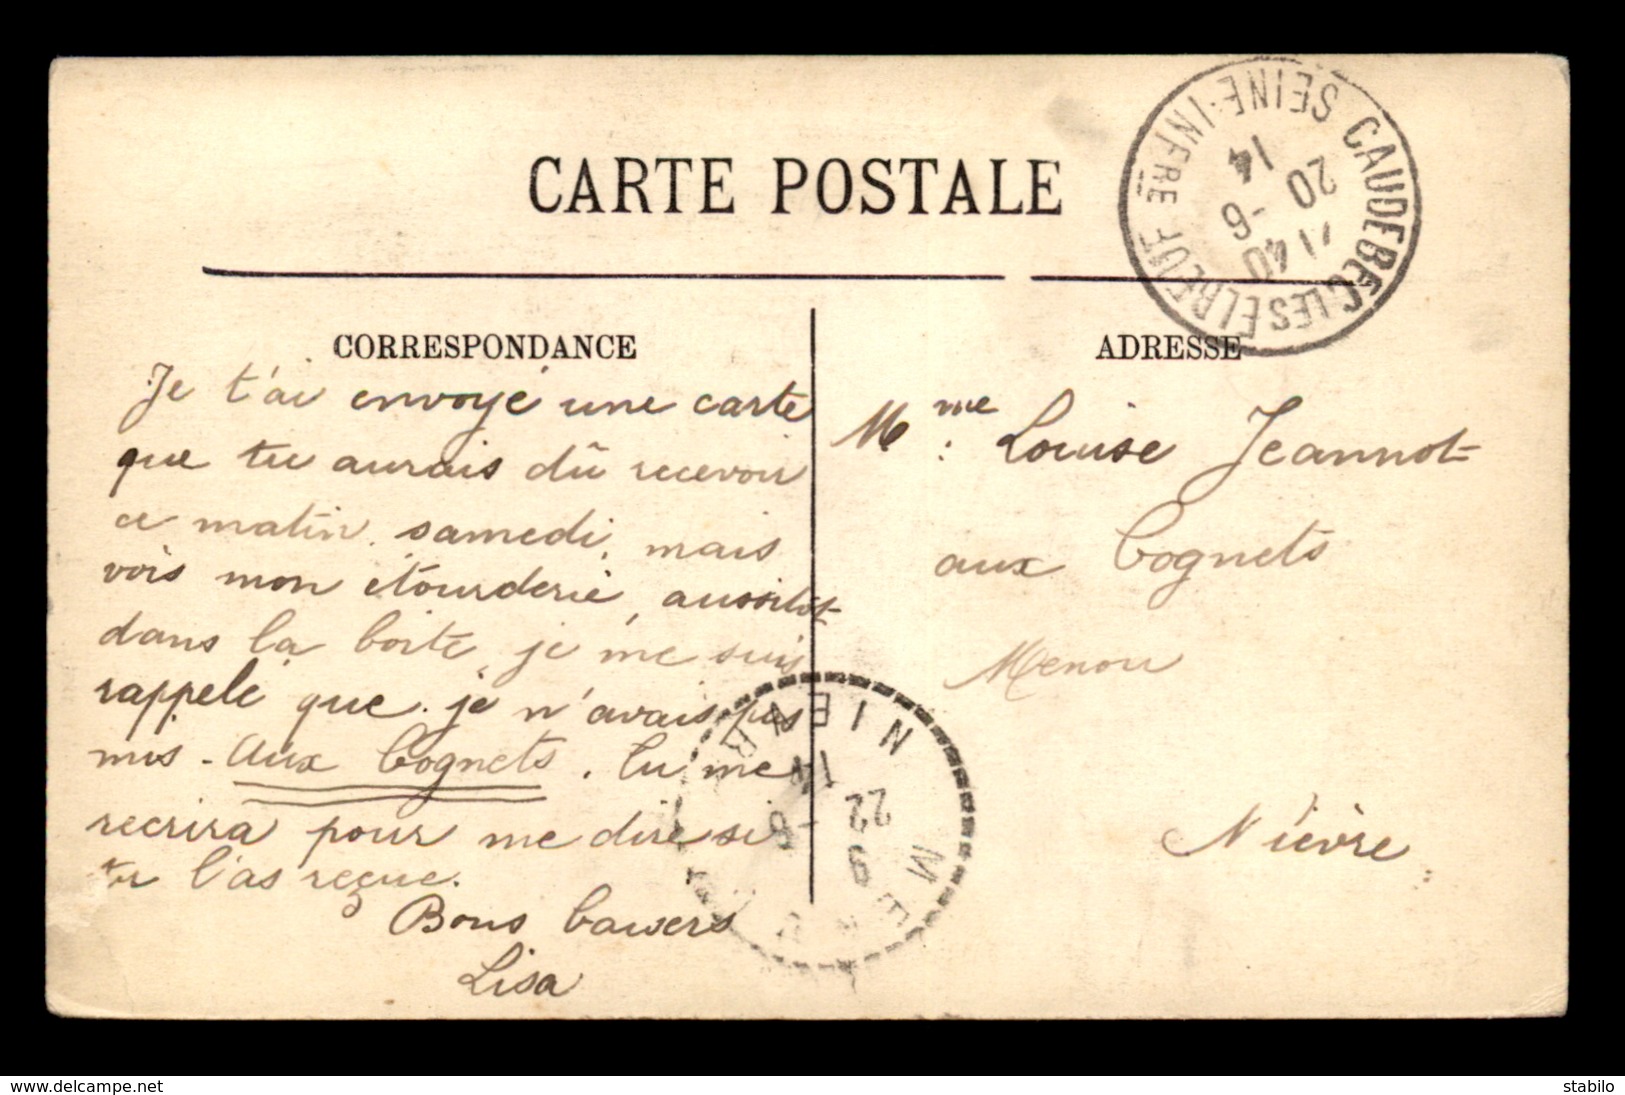 CARTE POSTALE
CORRESPONDANCE
Je t'ai envoyé une carte
que tu aurais dû recevoir
ce matin, samedi, mais
vois mon étourderie, aussitôt
dans la boite, je me suis
rappelé que je n'avais pas
mis - aux Cognets. Tu me
recrira pour me dire si
tu l'as reçue.
Bons baisers
Lisa
ADRESSE
Mme: Louise Jeannot
aux Cognets
Menou
Nièvre
CAUDEBEC LES ELBEUF
SEINE-INFRE
40
20 -6
14
MENOU
NIEVRE
9
22 -6
14
www.delcampe.net
stabilo